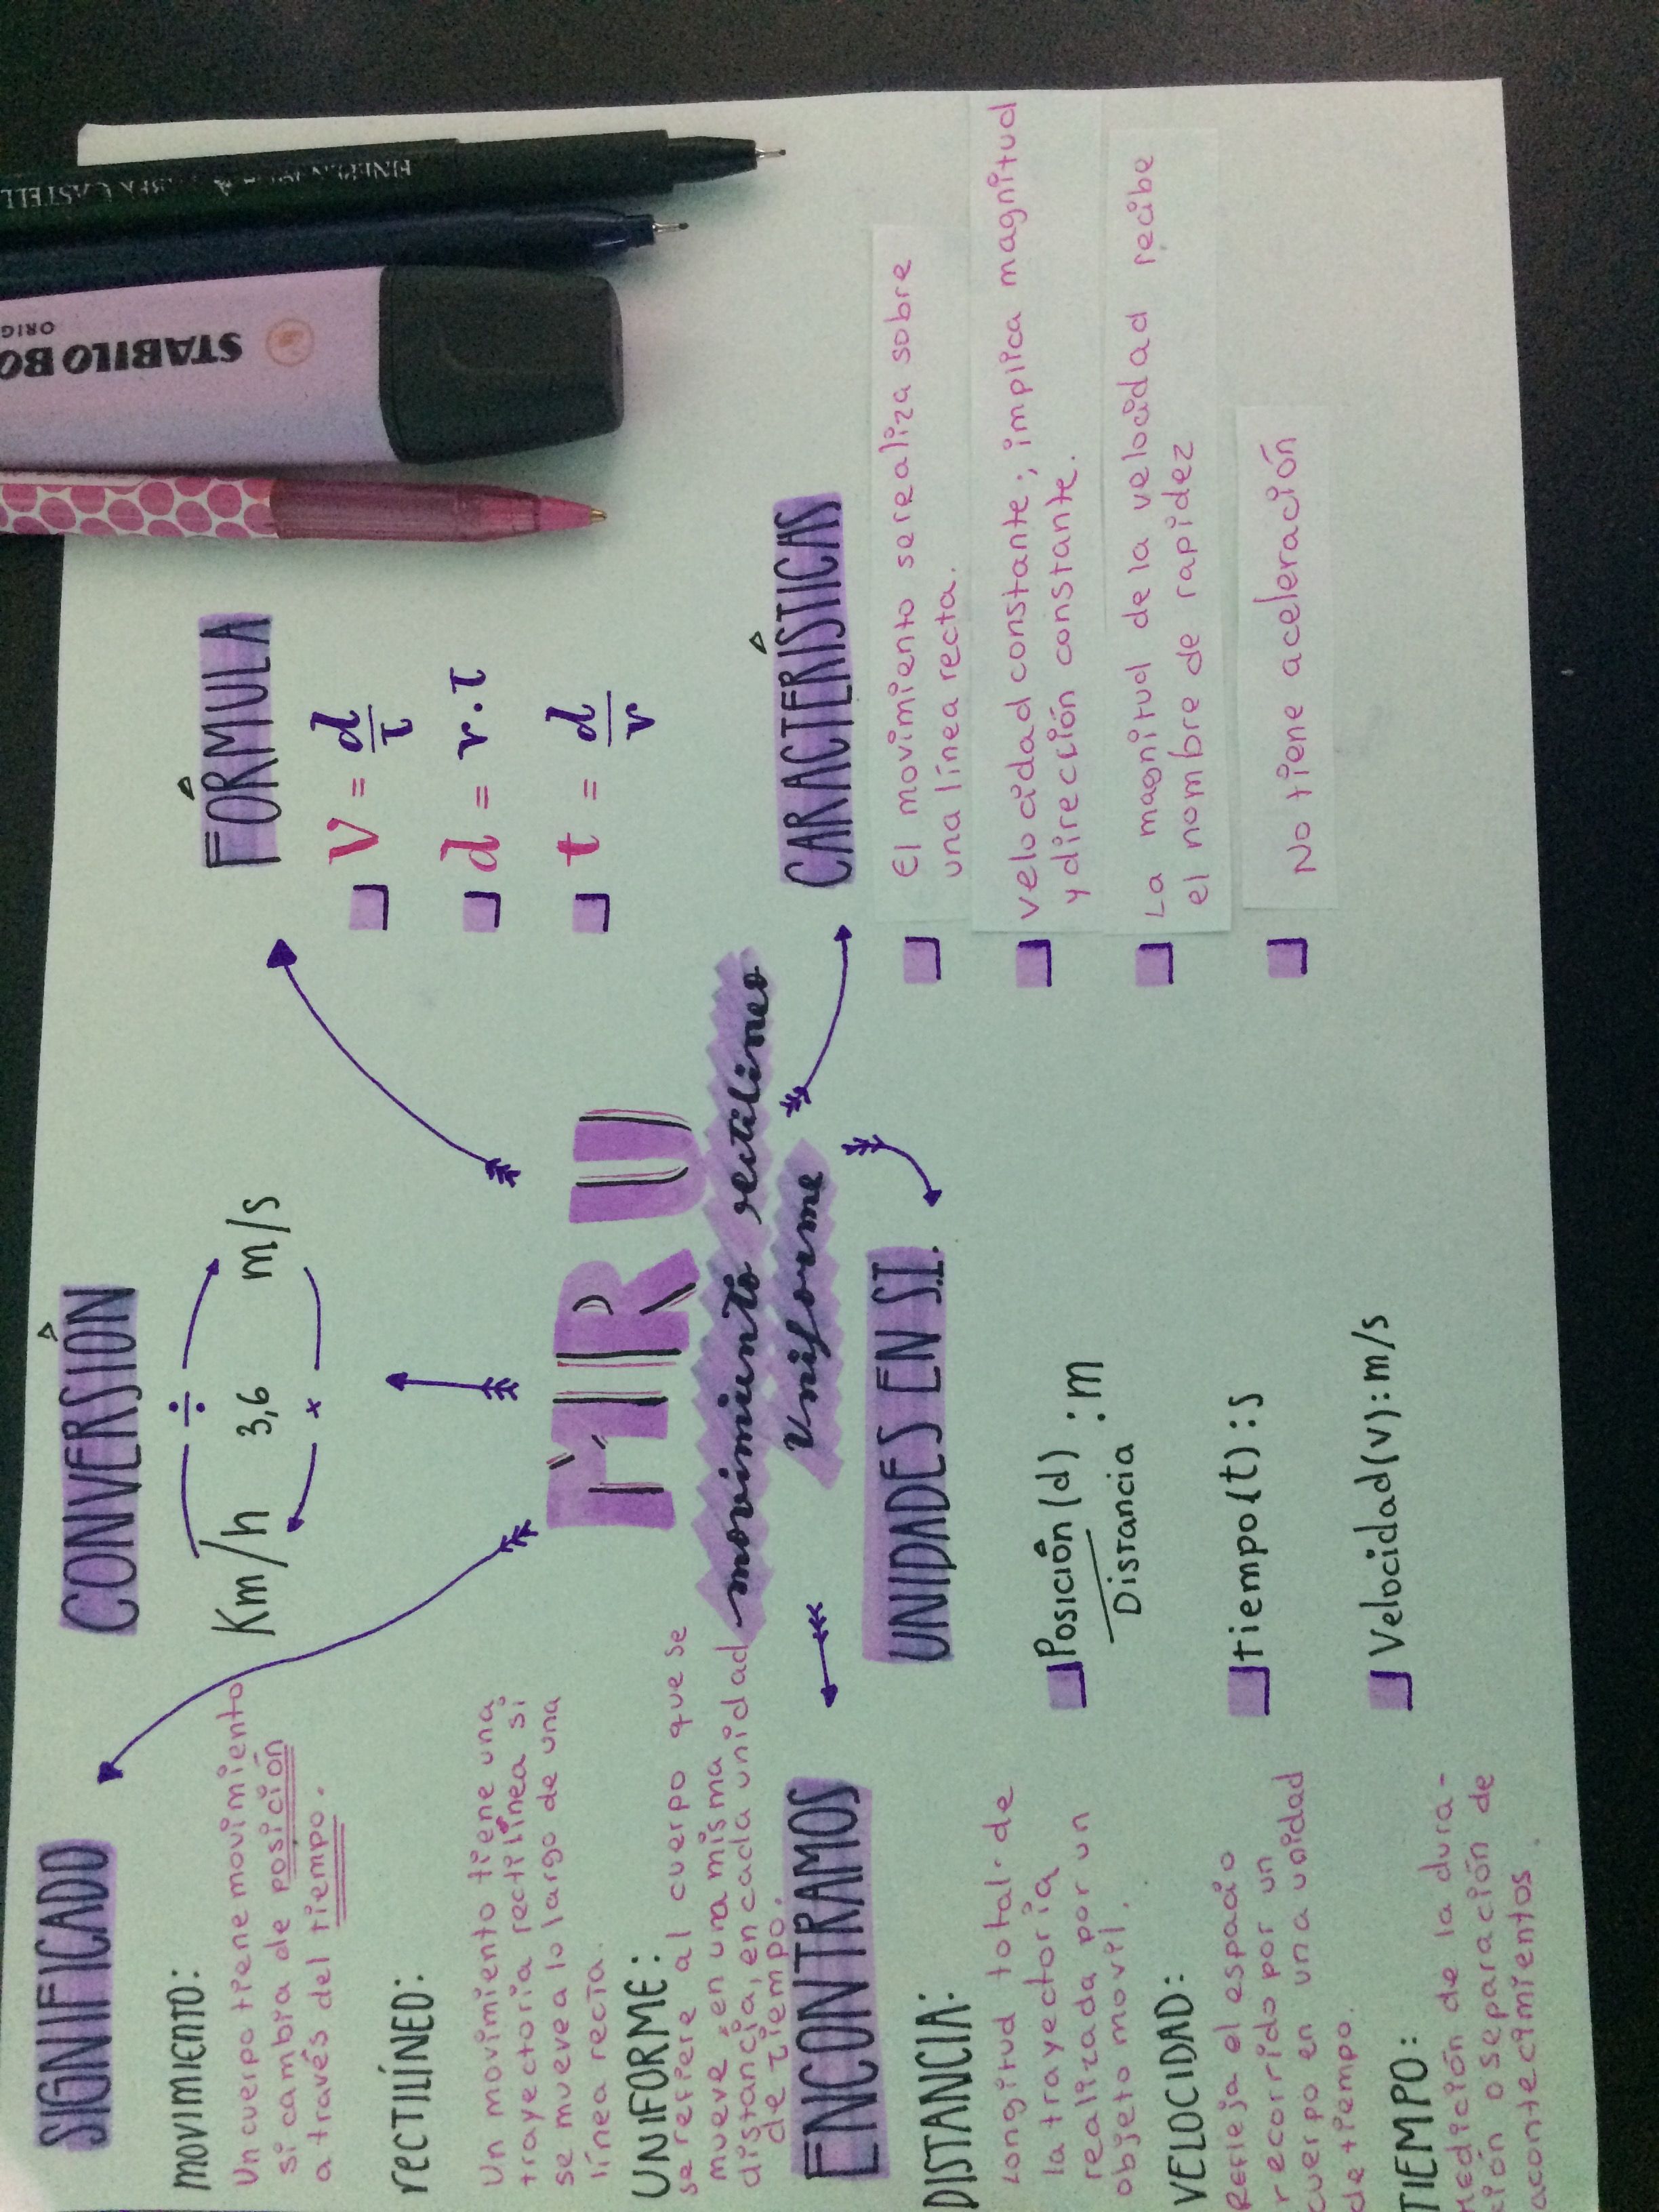 SIGNIFICADO
MOVIMIENTO:
Un cuerpo tiene movimiento
si cambia de posición
a través del tiempo.
RECTILÍNEO:
Un movimiento tiene una
trayectoria rectilínea si
se mueve a lo largo de una
línea recta.
UNIFORME:
se refiere al cuerpo que se
mueve en una misma
distancia, en cada unidad
de tiempo.
CONVERSIÓN
÷
Km/h 3,6 m/s
x
FÓRMULA
V = d/t
d = v.t
t = d/v
MRU
movimiento rectilíneo
Uniforme
ENCONTRAMOS
DISTANCIA:
Longitud total de
la trayectoria
realizada por un
objeto movil.
VELOCIDAD:
Refleja el espacio
recorrido por un
cuerpo en una unidad
de tiempo.
TIEMPO:
Medición de la dura-
ción o separación de
acontecimientos.
UNIDADES EN S.I.
Posición (d) : m
Distancia
tiempo (t) : s
Velocidad (v) : m/s
CARACTERÍSTICAS
El movimiento se realiza sobre
una línea recta.
velocidad constante; implica magnitud
y dirección constante.
La magnitud de la velocidad recibe
el nombre de rapidez
No tiene aceleración
STABILO BO
ORIG
CASTELL